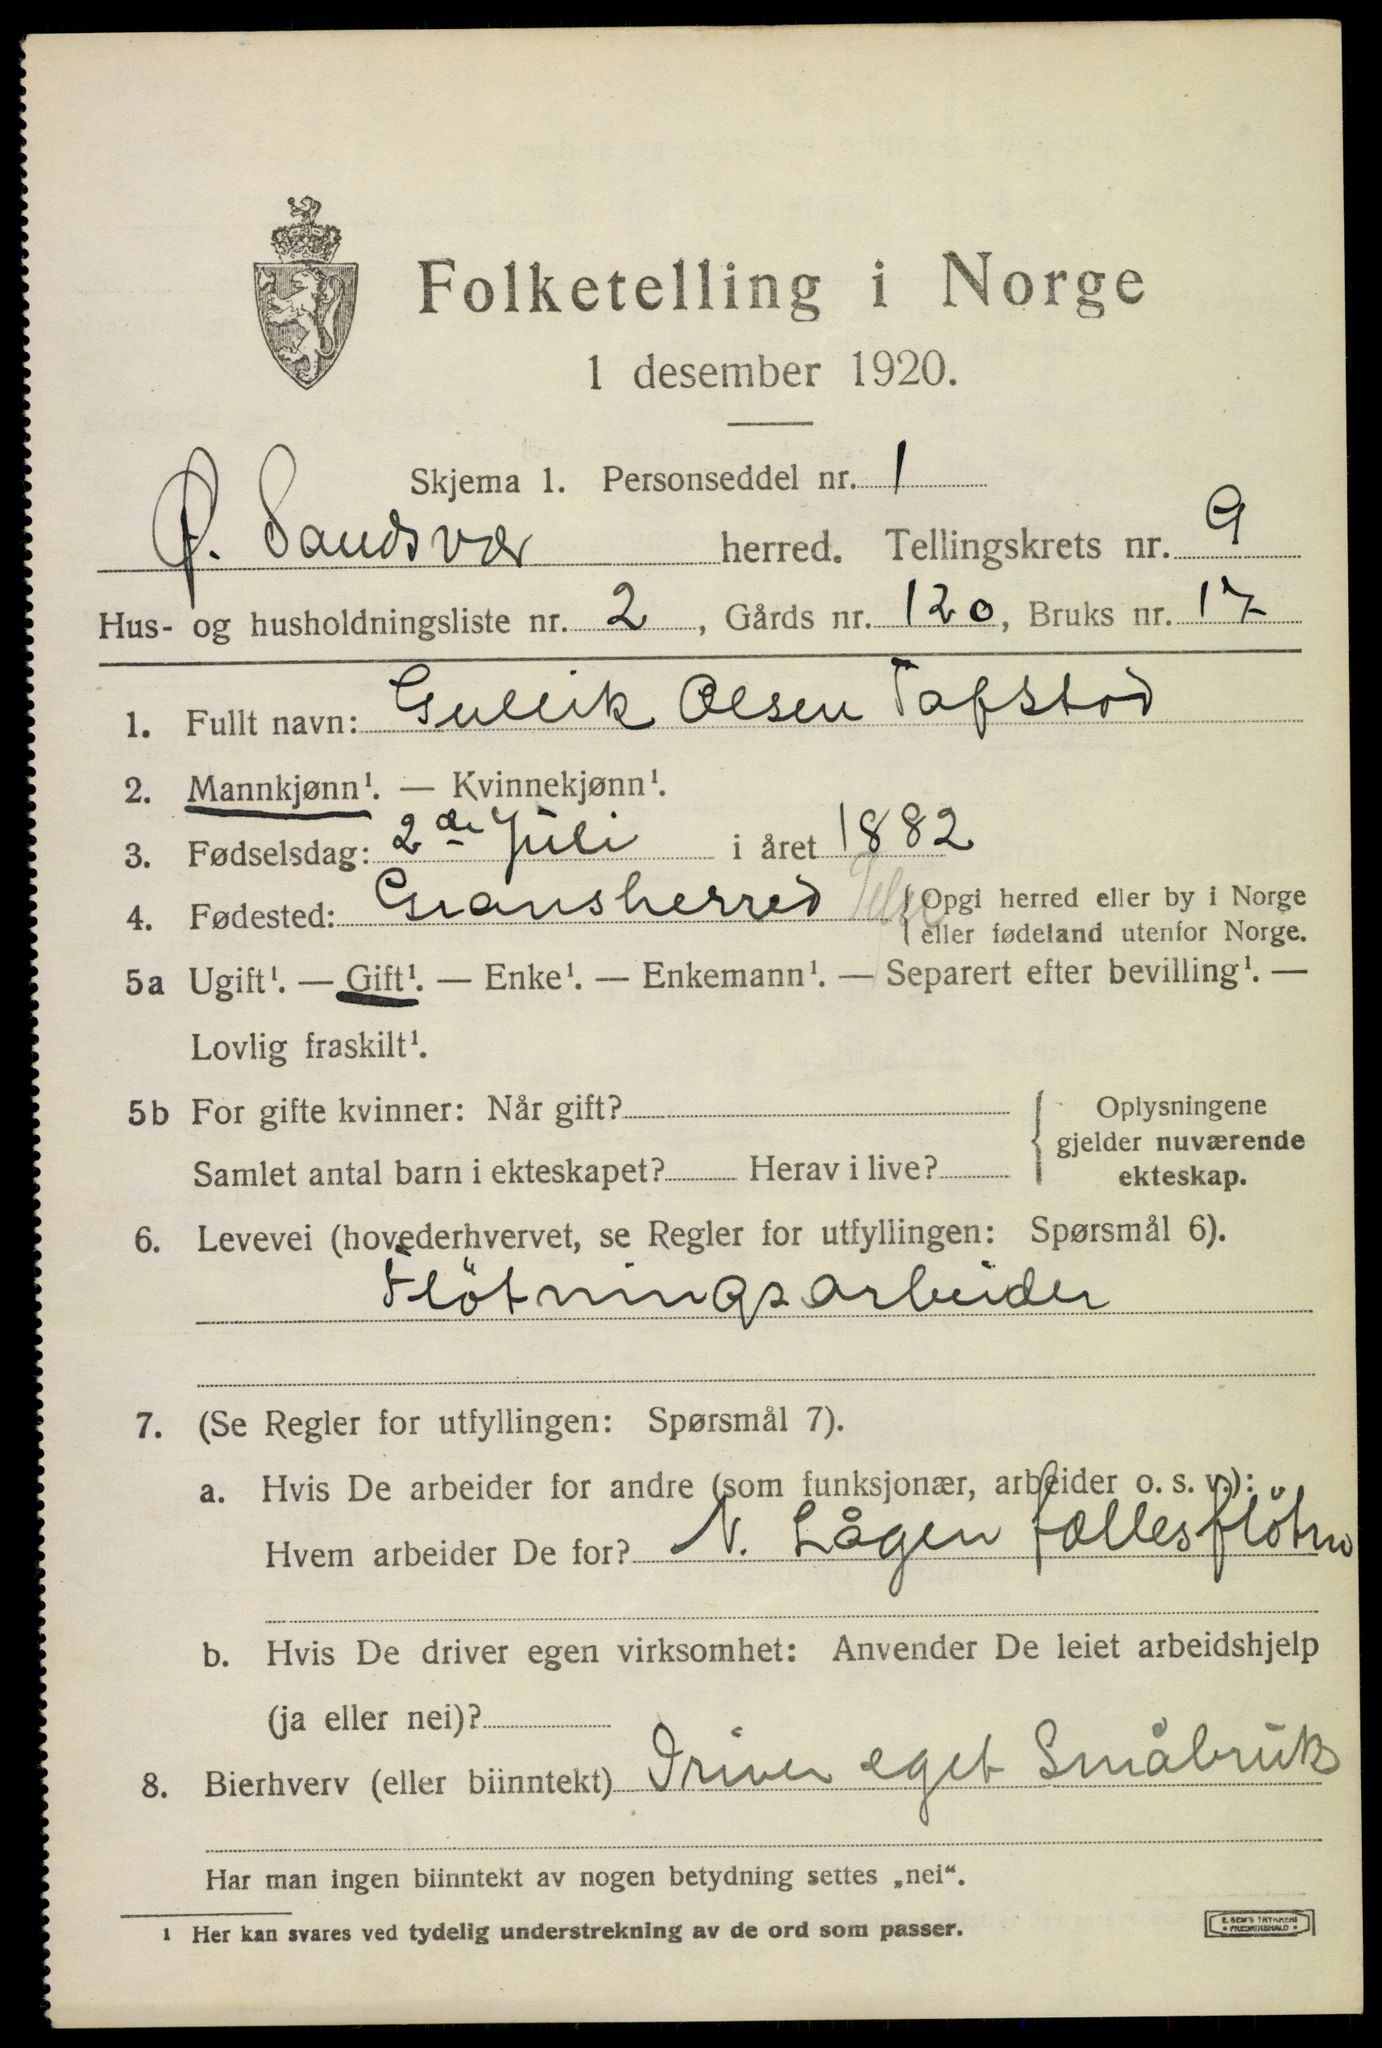 Folketelling i Norge
1 desember 1920.
Skjema 1. Personseddel nr. 1
Ø. Sandsvær herred. Tellingskrets nr. 9
Hus- og husholdningsliste nr. 2, Gårds nr. 120, Bruks nr. 17
1. Fullt navn: Gullik Olsen Tofstod
2. Mannkjønn¹. — Kvinnekjønn¹.
3. Fødselsdag: 2de Juli i året 1882
4. Fødested: Gransherred { Opgi herred eller by i Norge
eller fødeland utenfor Norge.
5a Ugift¹. — Gift¹. — Enke¹. — Enkemann¹. — Separert efter bevilling¹. —
Lovlig fraskilt¹.
5b For gifte kvinner: Når gift? { Oplysningene
gjelder nuværende
Samlet antal barn i ekteskapet? Herav i live? ekteskap.
6. Levevei (hovederhvervet, se Regler for utfyllingen: Spørsmål 6).
Flötningsarbeider
7. (Se Regler for utfyllingen: Spørsmål 7).
a. Hvis De arbeider for andre (som funksjonær, arbeider o. s. v.):
Hvem arbeider De for? N. Lågen fællesflötn
b. Hvis De driver egen virksomhet: Anvender De leiet arbeidshjelp
(ja eller nei)?
8. Bierhverv (eller biinntekt) Driver eget Småbruk
Har man ingen biinntekt av nogen betydning settes „nei“.
¹ Her kan svares ved tydelig understrekning av de ord som passer.
E. SEM'S TRYKKERI
FREDRIKSHALD